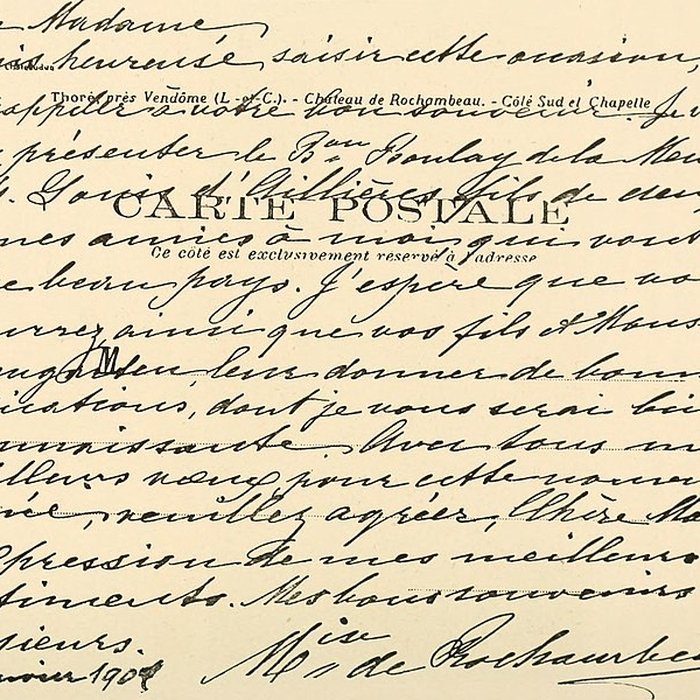 Madame,
heureuse saisir cette occasion,
Chateaudun
Thoré, près Vendôme (L.-et-C.). - Château de Rochambeau. - Côté Sud et Chapelle
rappeler à votre bon souvenir. Je
présenter le Bon Boulay de la Meu
Louis d'Aillières, fils de deux
CARTE POSTALE
mes amies à moi, qui vont
Ce côté est exclusivement réservé à l'adresse
ce beau pays. J'espère que vo
urrez ainsi que vos fils et Mons
M
leur donner de bonn
ications, dont je vous serai bie
nnaissante. Avec tous m
illeurs vœux pour cette nouve
ée, veuillez agréer, Chère Ma
pression de mes meilleurs
timents. Mes bons souvenirs
sieurs.
Mise de Rochambeau
nvier 190